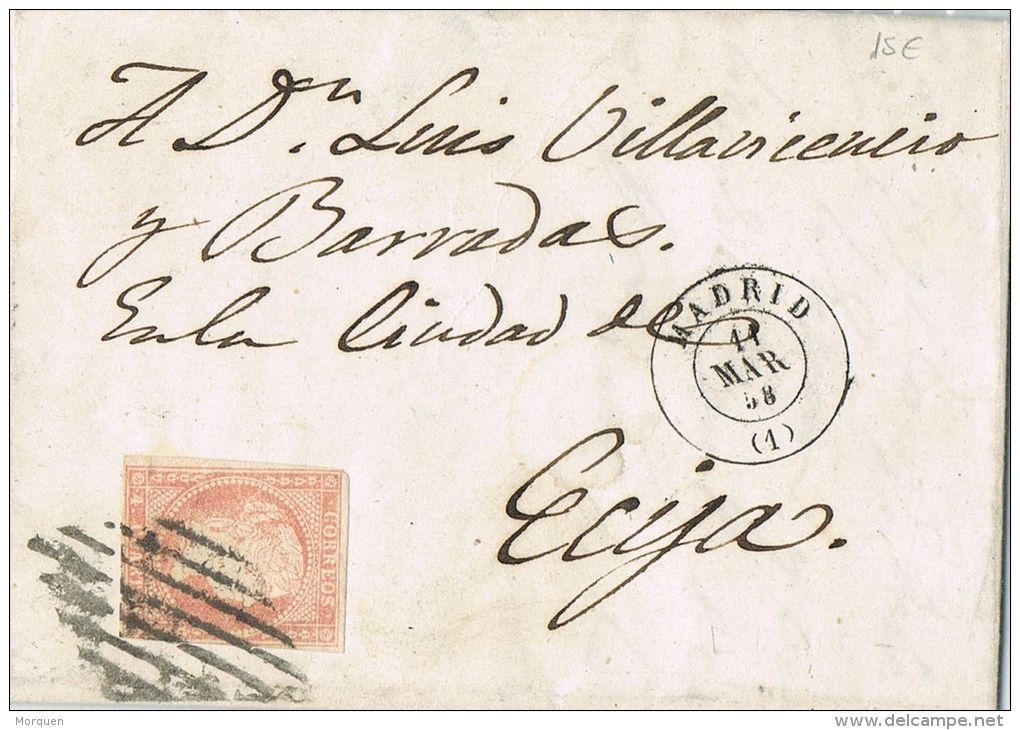 15€
A D.n Luis Villavicencio
y Barradas.
En la Ciudad de
MADRID
11
MAR
58
(1)
Ecija.
CORREOS
Morquen
delcampe.net